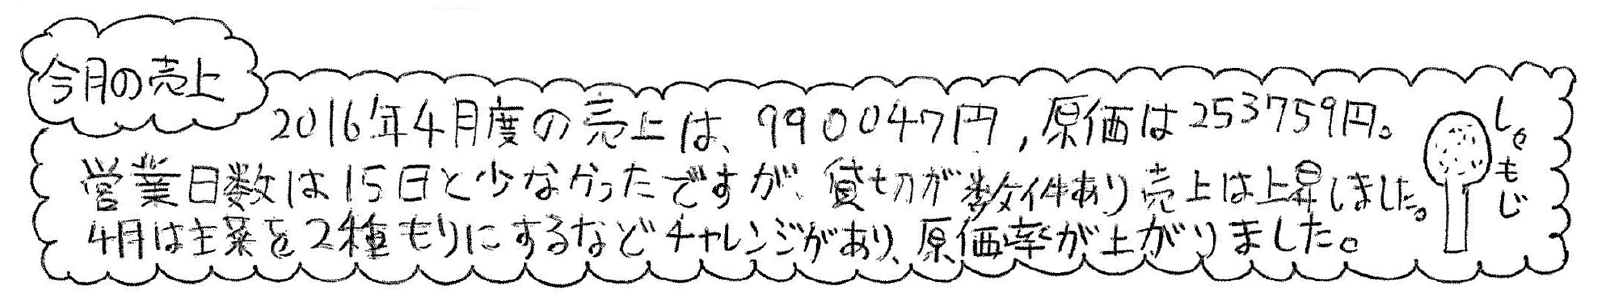 今月の売上
2016年4月度の売上は、990047円,原価は253759円。
営業日数は15日と少なかったですが、貸切が数件あり売上は上昇しました。
4月は主菜を2種もりにするなどチャレンジがあり、原価率が上がりました。
しゃもじ